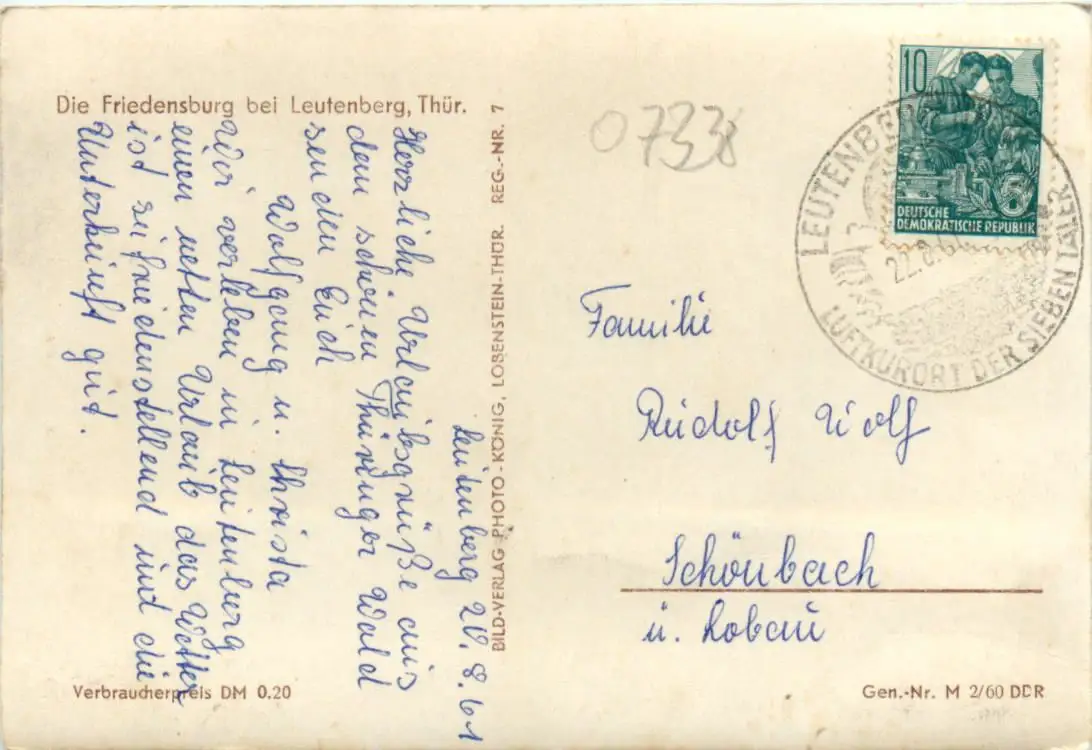 Die Friedensburg bei Leutenberg, Thür.
Leutenberg 20.8.61
Herzliche Urlaubsgrüße aus
dem schönen Thüringer Wald
senden Euch
Wolfgang u. Christa
Wir verleben in Leutenberg
einen netten Urlaub das Wetter
ist zufriedenstellend und die
Unterkunft gut.
Verbraucherpreis DM 0.20
BILD-VERLAG PHOTO-KÖNIG, LOBENSTEIN-THÜR. REG.-NR. 7
07338
10
DEUTSCHE
DEMOKRATISCHE REPUBLIK
LEUTENBERG
22.8.61
LUFTKURORT DER SIEBEN TÄLER
Familie
Rudolf Wolf
Schönbach
ü. Löbau
Gen.-Nr. M 2/60 DDR